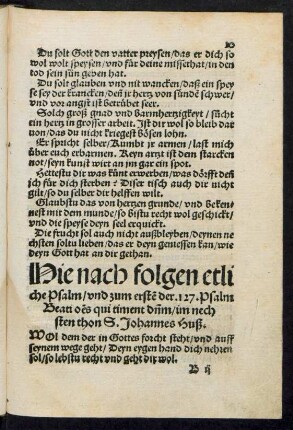 10
Du solt Gott den vatter preysen/das er dich so
wol wolt speysen/vnd für deine missethat/in den
tod sein sün geben hat.
Du solt glauben vnd nit wancken/daß ein spey
se sey der krancken/deñ jr hertz von sünde schwer/
vnd vor angst ist betrübet seer.
Solch groß gnad vnd barmhertzigkeyt/sücht
ein hertz in grosser arbeit. Ist dir wol so bleib dar
uon/das du nicht kriegest bösen lohn.
Er spricht selber/Kumbt jr armen/last mich
über euch erbarmen. Keyn artzt ist dem starcken
not/seyn kunst wirt an jm gar ein spot.
Hettestu dir was künt erwerben/was dörfft deñ
ich für dich sterben? Diser tisch auch dir nicht
gilt/so du selber dir helffen wilt.
Glaubstu das von hertzen grunde/vnd beken/
nest mit dem munde/so bistu recht wol geschickt/
vnd die speyse deyn seel erquickt.
Die frucht sol auch nicht außbleyben/deynen ne
chsten soltu lieben/das er deyn geniessen kan/wie
deyn Gott hat an dir gethan.
Hie nach folgen etli
che Psalm/vnd zum erstē der.127.Psalm
Beati oēs qui timent dñm/in nech
sten thon S. Johannes Huß.
WOl dem der in Gottes forcht steht/vnd auff
seynem wege geht/Deyn eygen hand dich nehren
sol/so lebstu recht vnd geht dir wol.
B ij